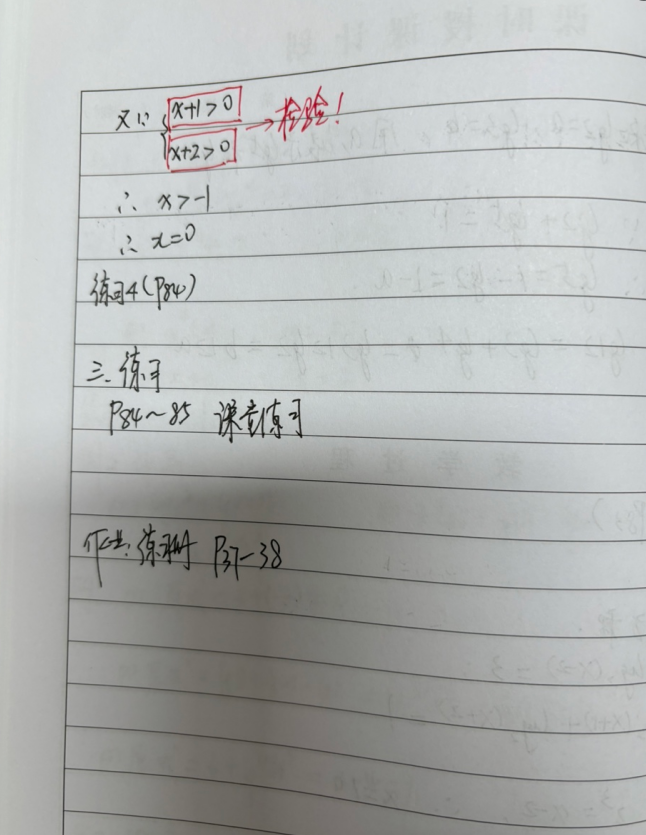 又∵ { x+1>0 → 检验!
x+2>0
∴ x>-1
∴ x=0
练习4(P84)
三、练习
P84~85 课堂练习
作业: 练习册 P37-38